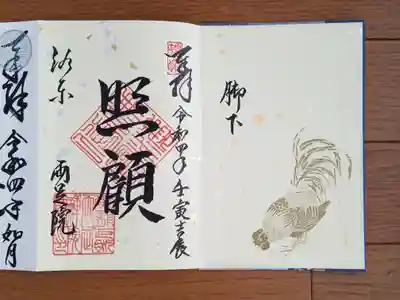 脚下
奉拝 令和四年 壬寅吉辰
照顧
洛東
兩足院
奉拝 令和四年 如月